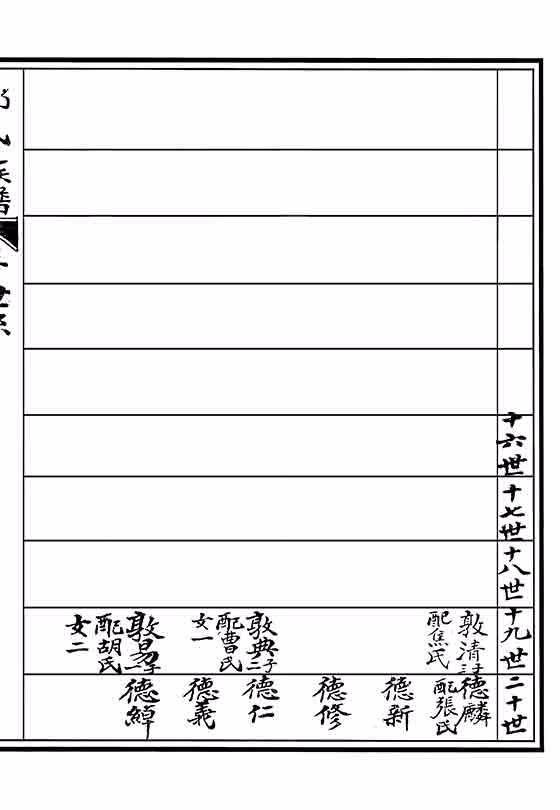 十六世
十七世
十八世
十九世
二十世
敦清
配焦氏
敦典子二
配曹氏
女一
敦易子一
配胡氏
女二
德麟
配張氏
德新
德修
德仁
德義
德綽
氏族譜
世系